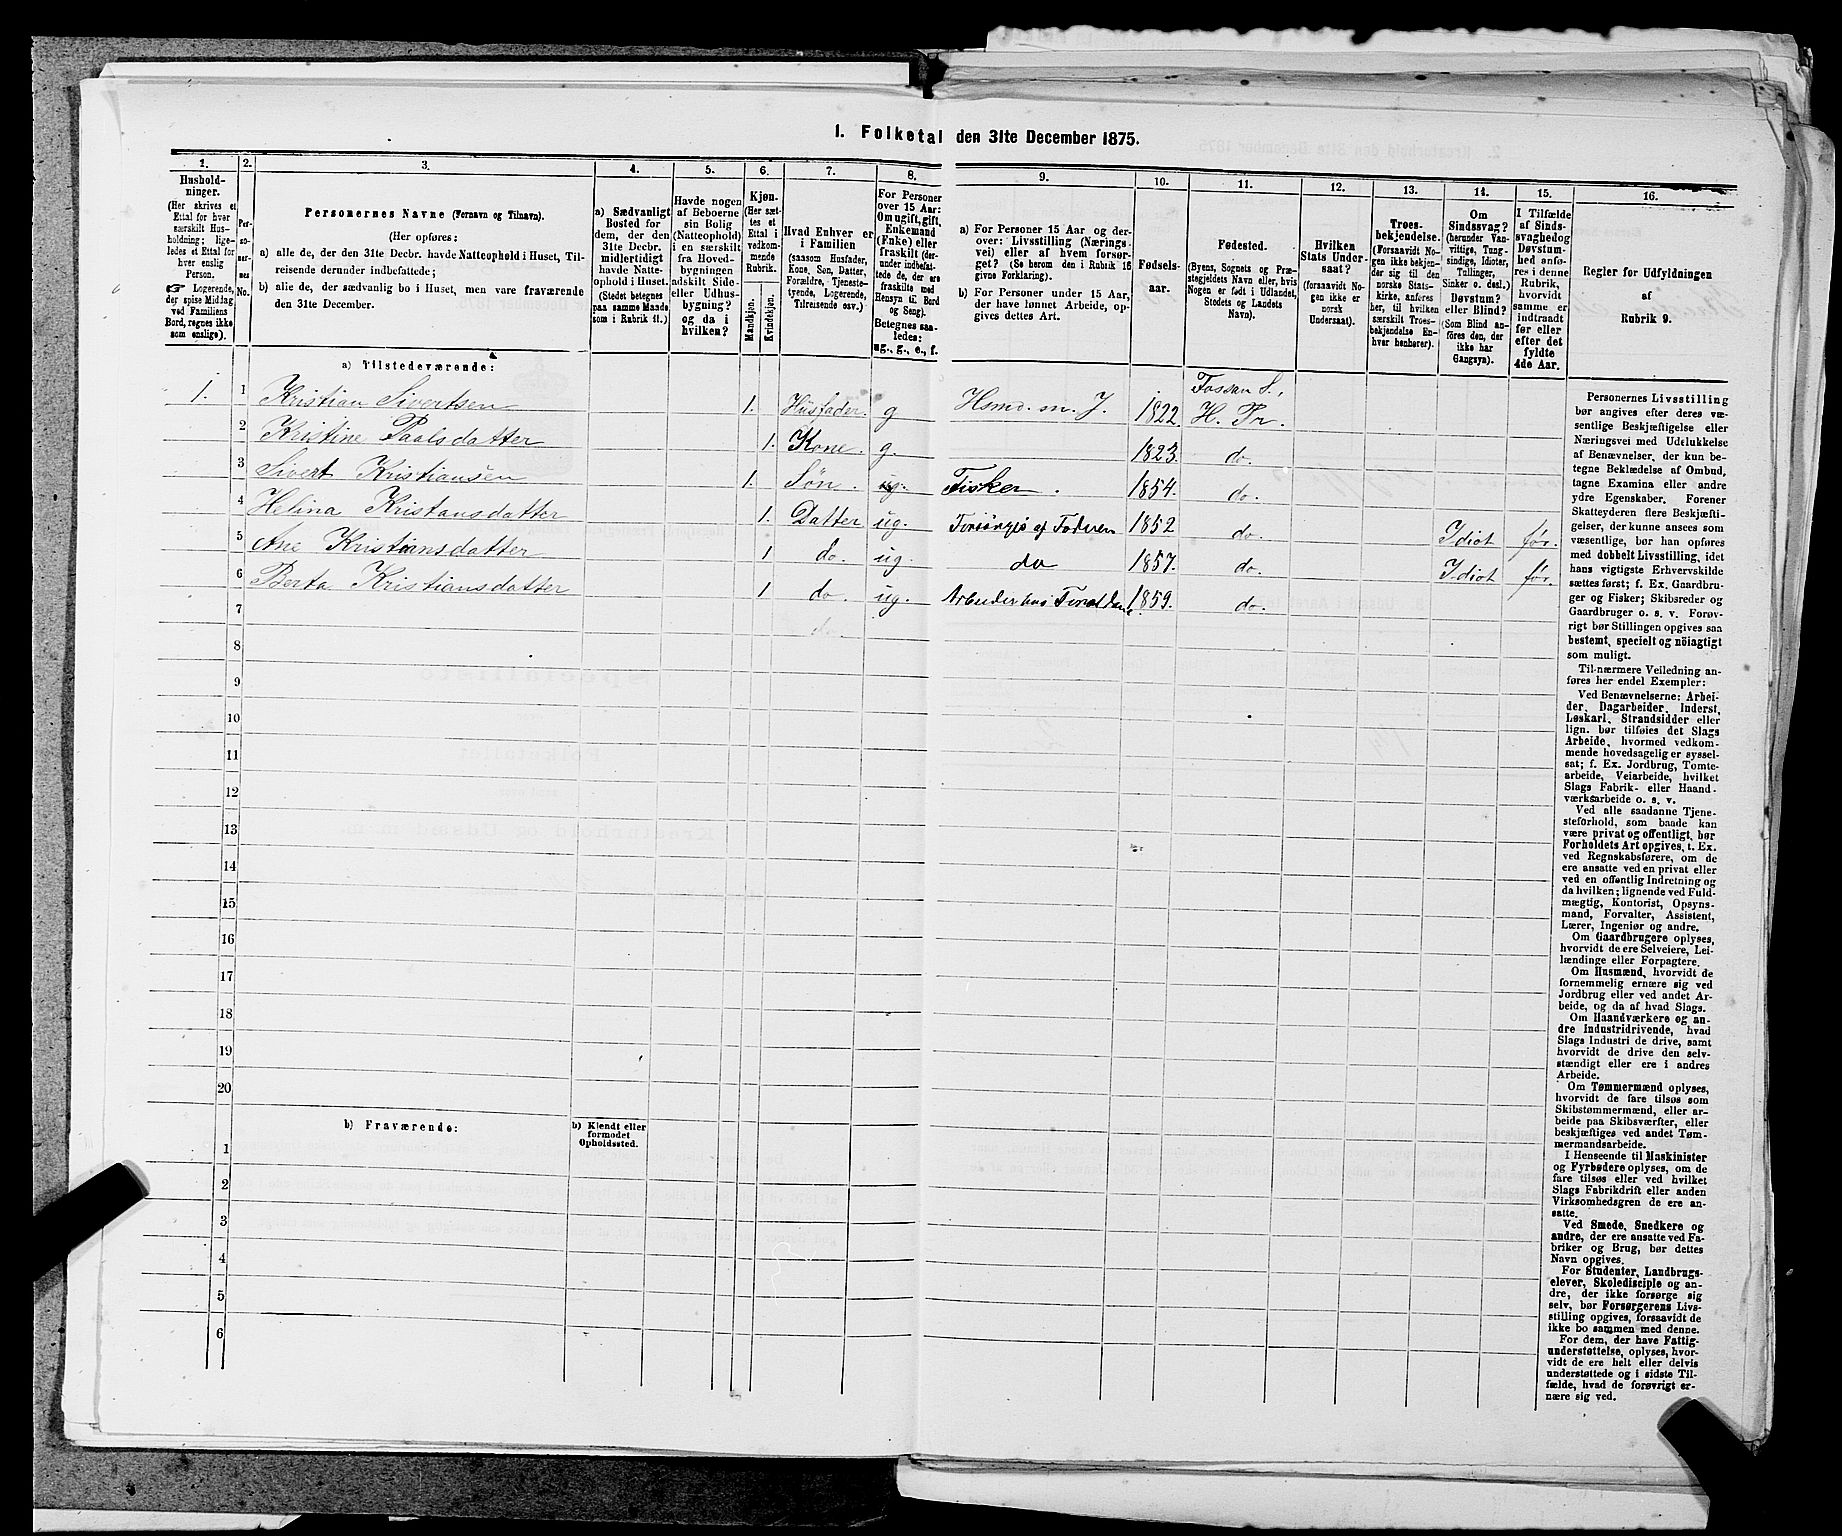 1. Folketal den 31te December 1875.
1. 2. 3. 4. 5. 6. 7. 8. 9. 10. 11. 12. 13. 14. 15. 16.
Hushold-
ninger.
(Her skrives et
Ettal for hver
særskilt Hus-
holdning; lige-
ledes et Ettal for
hver enslig
Person.
☞ Logerende,
der spise Middag
ved Familiens
Bord, regnes ikke
som enslige).
Per-
so-
ner-
nes
No.
Personernes Navne (Fornavn og Tilnavn).
(Her opføres:
a) alle de, der den 31te Decbr. havde Natteophold i Huset, Til-
reisende derunder indbefattede;
b) alle de, der sædvanlig bo i Huset, men vare fraværende
den 31te December.
a) Sædvanligt
Bosted for
dem, der den
31te Decbr.
midlertidigt
havde Natte-
ophold i Huset.
(Stedet betegnes
paa samme Maade
som i Rubrik 11.)
Havde nogen
af Beboerne
sin Bolig
(Natteophold)
i en særskilt
fra Hoved-
bygningen
adskilt Side-
eller Udhus-
bygning?
og da i
hvilken?
Kjøn.
(Her sæt-
tes et
Ettal i
vedkom-
mende
Rubrik.
Mandkjøn.
Kvindekjøn.
Hvad Enhver er
i Familien
(saasom Husfader,
Kone, Søn, Datter,
Forældre, Tjeneste-
tyende, Logerende,
Tilreisende osv.)
For Personer
over 15 Aar:
Om ugift, gift,
Enkemand
(Enke) eller
fraskilt (der-
under indbefat-
tede de, der ere
fraskilte med
Hensyn til Bord
og Seng).
Betegnes saa-
ledes:
ug., g., e., f.
a) For Personer 15 Aar og der-
over: Livsstilling (Nærings-
vei) eller af hvem forsør-
get? (Se herom den i Rubrik 16
givne Forklaring).
b) For Personer under 15 Aar,
der have lønnet Arbeide, op-
gives dettes Art.
Fødsels-
aar.
Fødested.
(Byens, Sognets og Præ-
stegjeldets Navn eller, hvis
Nogen er født i Udlandet,
Stedets og Landets
Navn).
Hvilken
Stats Under-
saat?
(forsaavidt No-
gen ikke er
norsk
Undersaat).
Troes-
bekjendelse.
(Forsaavidt No-
gen ikke bekjen-
der sig til den
norske Stats-
kirke, anføres
her, til hvilken
særskilt Troes-
bekjendelse En-
hver henhører).
Om
Sindssvag?
(herunder Van-
vittige, Tung-
sindige, Idioter,
Tullinger,
Sinker o. desl.)
Døvstum?
eller Blind?
(Som Blind an-
føres den, der
ikke har
Gangsyn).
I Tilfælde
af Sinds-
svaghed og
Døvstum-
hed anfø-
res i denne
Rubrik,
hvorvidt
samme er
indtraadt
før eller
efter det
fyldte
4de Aar.
Regler for Udfyldningen
af
Rubrik 9.
a) Tilstedeværende:
1. 1 Kristian Sivertsen 1. Husfader. g Hsmd. m. J. 1822. Fossan S., H. Pr.
2 Kristine Paalsdatter 1. Kone. g. 1823. do.
3 Sivert Kristiansen 1. Søn. ug. Fisker. 1854. do.
4 Helina Kristansdatter 1. Datter ug. af Faderen 1852 do. Idiot før.
5 Ane Kristiansdatter 1 do. ug. do 1857. do. Idiot før.
6 Berta Kristiansdatter 1 do. ug. 1859. do.
7 do.
8
9
10
11
12
13
14
15
16
17
18
19
20
b) Fraværende:
b) Kjendt eller
formodet
Opholdssted.
1
2
3
4
5
6
Personernes Livsstilling
bør angives efter deres væ-
sentlige Beskjæftigelse eller
Næringsvei med Udelukkelse
af Benævnelser, der kun be-
tegne Beklædelse af Ombud,
tagne Examina eller andre
ydre Egenskaber. Forener
Skatteyderen flere Beskjæfti-
gelser, der kunne ansees som
væsentlige, bør han opføres
med dobbelt Livsstilling, idet
hans vigtigste Erhvervskilde
sættes først; f. Ex. Gaardbru-
ger og Fisker; Skibsreder og
Gaardbruger o. s. v. Forøv-
rigt bør Stillingen opgives saa
bestemt, specielt og nöiagtigt
som muligt.
Til nærmere Veiledning an-
føres her endel Exempler:
Ved Benævnelserne: Arbei-
der, Dagarbeider, Inderst,
Løskarl, Strandsidder eller
lign. bør tilføies det Slags
Arbeide, hvormed vedkom-
mende hovedsagelig er syssel-
sat; f. Ex. Jordbrug, Tomte-
arbeide, Veiarbeide, hvilket
Slags Fabrik- eller Haand-
værksarbeide o. s. v.
Ved alle saadanne Tjene-
steforhold, som baade kan
være privat og offentligt, bør
Forholdets Art opgives, t. Ex.
ved Regnskabsførere, om de
ere ansatte ved en privat eller
ved en offentlig Indretning og
da hvilken; lignende ved Fuld-
mægtig, Kontorist, Opsyns-
mand, Forvalter, Assistent,
Lærer, Ingeniør og andre.
Om Gaardbrugere oplyses,
hvorvidt de ere Selveiere, Lei-
lændinge eller Forpagtere.
Om Husmænd, hvorvidt de
fornemmelig ernære sig ved
Jordbrug eller ved andet Ar-
beide, og da af hvad Slags.
Om Haandværkere og an-
dre Industridrivende, hvad
Slags Industri de drive, samt
hvorvidt de drive den selv-
stændigt eller ere i andres
Arbeide.
Om Tømmermænd oplyses,
hvorvidt de fare tilsøs som
Skibstømmermænd, eller ar-
beide paa Skibsværfter, eller
beskjæftiges ved andet Tøm-
mermandsarbeide.
I Henseende til Maskinister
og Fyrbødere oplyses, om de
fare tilsøs eller ved hvilket
Slags Fabrikdrift eller anden
Virksomhedsgren de ere an-
satte.
Ved Smede, Snedkere og
andre, der ere ansatte ved Fa-
briker og Brug, bør dettes
Navn opgives.
For Studenter, Landbrugs-
elever, Skoledisciple og an-
dre, der ikke forsørge sig
selv, bør Forsørgerens Livs-
stilling opgives, forsaavidt de
ikke bo sammen med denne.
For dem, der have Fattig-
understøttelse, oplyses, hvor-
vidt de ere helt eller delvis
understøttede og i sidste Til-
fælde, hvad de forøvrigt er-
nære sig ved.